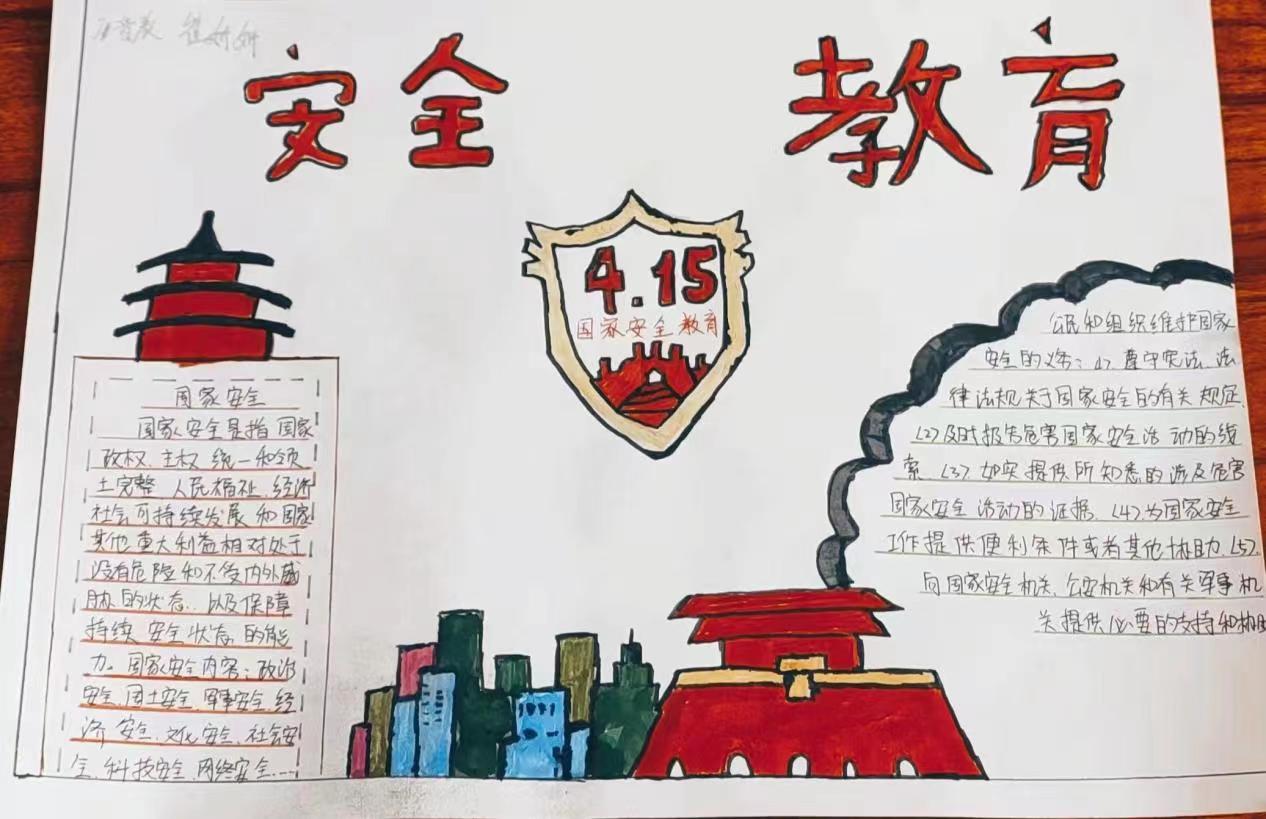 崔妍妍
安全 教育
4.15
国家安全教育
国家安全
国家安全是指国家
政权、主权、统一和领
土完整、人民福祉、经济
社会可持续发展和国家
其他重大利益相对处于
没有危险和不受内外威
胁的状态，以及保障
持续安全状态的能
力。国家安全内容：政治
安全、国土安全、军事安全、经
济安全、文化安全、社会安
全、科技安全、网络安全……
公民和组织维护国家
安全的义务：(1)、遵守宪法、法
律法规关于国家安全的有关规定、
(2)及时报告危害国家安全活动的线
索、(3)、如实提供所知悉的涉及危害
国家安全活动的证据、(4)、为国家安全
工作提供便利条件或者其他协助、(5)、
向国家安全机关、公安机关和有关军事机
关提供必要的支持和协助